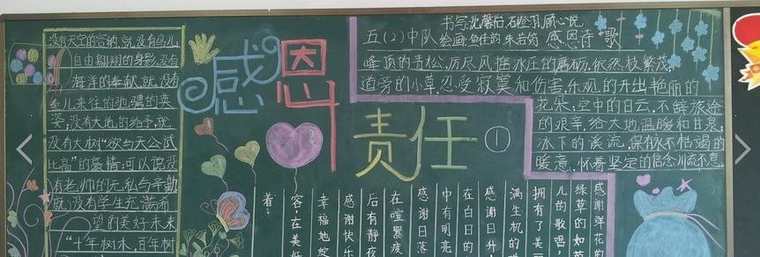 没有天空的容纳,就没有鸟儿
自由翱翔的身影;没有
海洋的奉献,就没有
鱼儿来往的驰骋的
姿;没有大地的给予,就
没有大树“欲与天公试
比高”的豪情;可以说没
有老师的无私与辛勤
就没有学生充满希
望的美好未来
“十年树木,百年树
感恩
责任
①
书写
五(2)中队 绘画 感恩诗歌
峰顶的青松,历尽风摧冰压的磨砺,依然枝繁茂,
道旁的小草,忍受寂寞和伤害,乐观的开出艳丽的
花朵,空中的白云,不辞旅途
的艰辛,给大地温暖和甘泉,
冰下的溪流,保有永不枯竭的
暖意,怀着坚定的信念川流不息
感谢鲜花的
绿草的如茵
儿的歌唱,
拥有了美丽
满生机的
感谢日升,
在白日的
中有明亮
感谢日落
在喧繁疲
后有静夜
感谢快乐
幸福地绽
容,在美好
着,